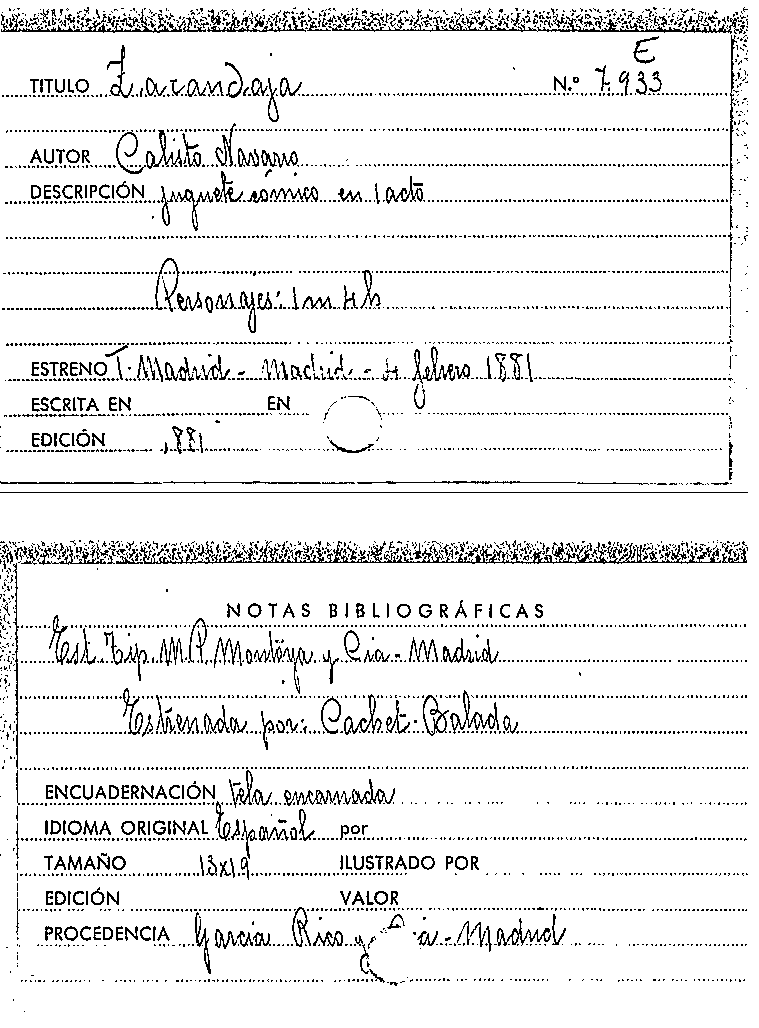 E
TITULO Zarandaja N.º 7.933
AUTOR Calisto Navarro
DESCRIPCIÓN juguete cómico en 1 acto
Personajes: 1m 4h
ESTRENO T. Madrid - Madrid - 4 febrero 1881
ESCRITA EN EN
EDICIÓN 1881
NOTAS BIBLIOGRÁFICAS
Est. Tip. M.P. Montoya y Cia - Madrid
Estrenada por: Cachet - Balada
ENCUADERNACIÓN Tela encarnada
IDIOMA ORIGINAL Español por
TAMAÑO 13x19 ILUSTRADO POR
EDICIÓN VALOR
PROCEDENCIA Garcia Rico y Cia - Madrid